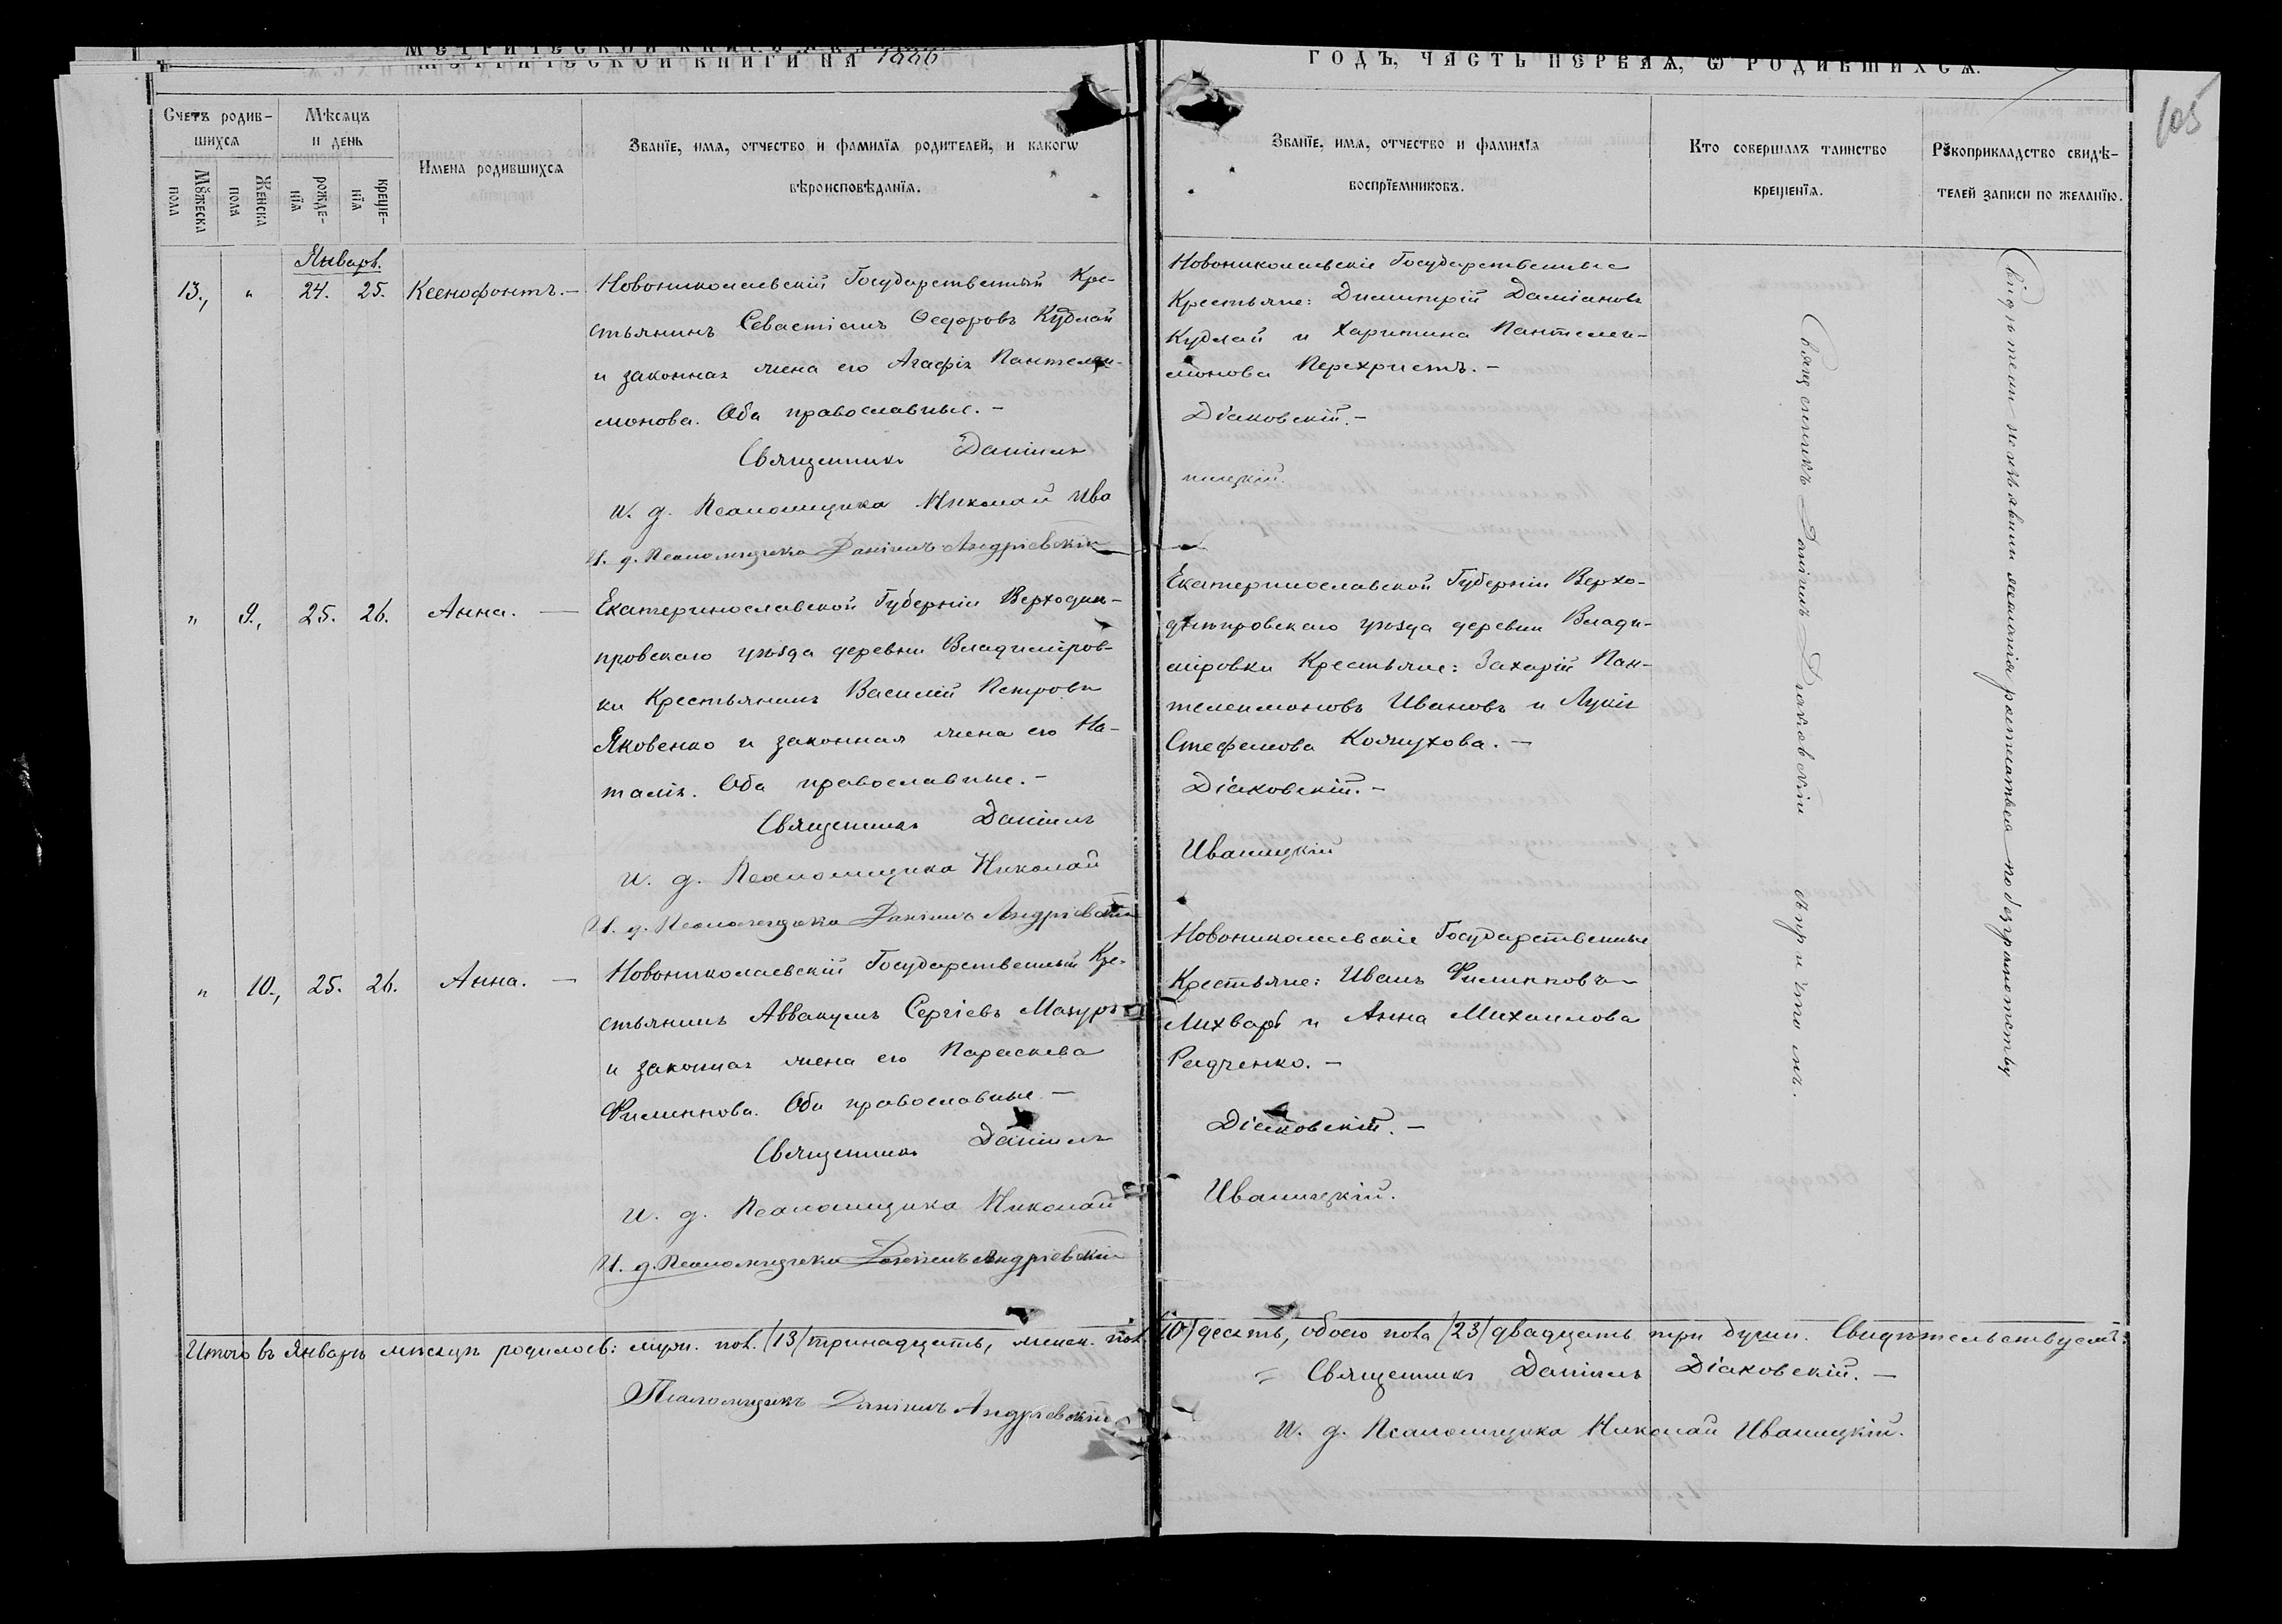 МЕТРИЧЕСКОЙ КНИГИ НА 1886
ГОДЪ, ЧАСТЬ ПЕРВАЯ, Ѡ РОДИВШИХСЯ.
105
Счетъ родив-
шихся
Мꙋжеска
пола
Женска
пола
Мѣсяцъ
и день
рожде-
нїя
креще-
нїя
Имена родившихся
Званїе, имя, отчество и фамилїя родителей, и какогѡ
вѣроисповѣданїя.
Званїе, имя, отчество и фамилїя
воспрїемниковъ.
Кто совершалъ таинство
крещенїя.
Рꙋкоприкладство свидѣ-
телей записи по желанїю.
Январь.
13., " 24. 25. Ксенофонтъ. –
Новониколаевскій Государственный Кре-
стьянинъ Севастіанъ Ѳедоровъ Кудлай
и законная жена его Агафія Пантелеи-
монова. Оба православные. –
Священникъ Даніилъ
И. д. Псаломщика Николай Ива
И. д. Псаломщика Даніилъ Андріевскій
Новониколаевскіе Государственные
Крестьяне: Димитрій Даміановъ
Кудлай и Харитина Пантелеи-
монова Перехристъ. –
Діаковскій. –
ницкій.
" 9., 25. 26. Анна. –
Екатеринославской Губерніи Верходнѣ-
провскаго уѣзда деревни Владиміров-
ки Крестьянинъ Василій Петровъ
Яковенко и законная жена его На-
талія. Оба православные. –
Священникъ Даніилъ
И. д. Псаломщика Николай
И. д. Псаломщика Даніилъ Андріевскій
Екатеринославской Губерніи Верхо-
днѣпровскаго уѣзда деревни Влади-
міровки Крестьяне: Захарій Пан-
телеимоновъ Ивановъ и Лукія
Стефанова Кожухова. –
Діаковскій. –
Иваницкій
" 10., 25. 26. Анна. –
Новониколаевскій Государственный Кре-
стьянинъ Аввакумъ Сергіевъ Мазуръ
и законная жена его Параскева
Филиппова. Оба православные –
Священникъ Даніилъ
И. д. Псаломщика Николай
И. д. Псаломщика Даніилъ Андріевскій
Новониколаевскіе Государственные
Крестьяне: Иванъ Филипповъ
Лихварь и Анна Михаилова
Радченко. –
Діаковскій. –
Иваницкій.
Священникъ Даніилъ Діаковскій
Свидѣтели не изъявили желанія росписаться по безграмотству
Итого въ Январѣ мѣсяцѣ родилось: муж. пол. /13/ тринадцать, женск. пол. /10/ десять, обоего пола /23/ двадцать три души. Свидѣтельствуемъ:
Священникъ Даніилъ Діаковскій. –
Псаломщикъ Даніилъ Андріевскій
И. д. Псаломщика Николай Иваницкій.